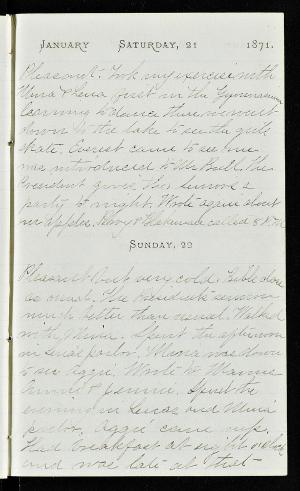 January Saturday, 21 1871.
Pleasant. Took my exercise with
Mina & Lena first in the Gymnasium
learning to dance then we went
down to the lake to see the girls
skate. Everest came to see me
was introduced to Mr Bull. The
President gives the Seniors a
party to night. Wrote again about
my apples. Mary & called 8 P.M
Sunday, 22
Pleasant but very cold. Bible class
as usual. The Presidents sermon
much better than usual. Walked
with Mina. Spent the afternoon
in Lenas parlor. Mama was down
to see Aggie. Wrote to Mamma
Annie & Jennie. Spent the
evening in Lenas and Minas
parlor. Aggie came up.
Had breakfast at eight o'clock
and was late at that